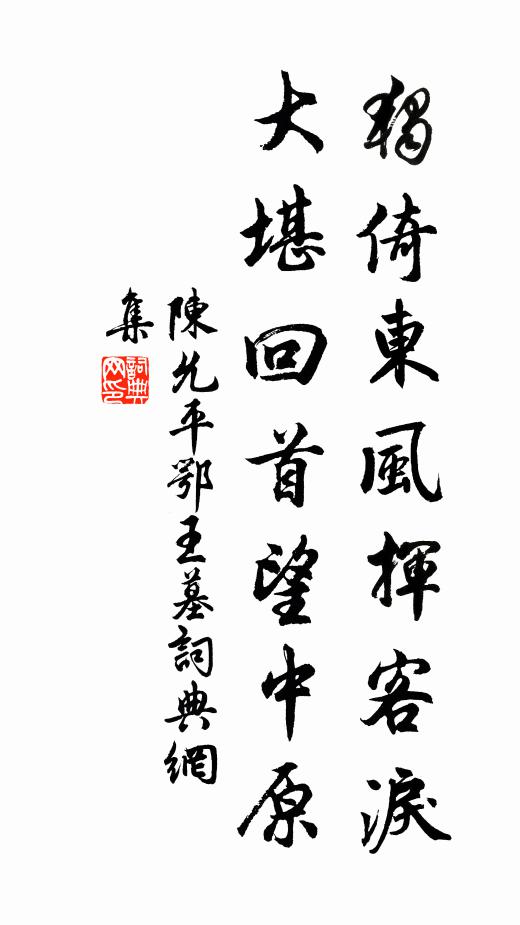 獨倚東風揮客淚
大堪回首望中原
陳允平鄂王墓詞典網
集
詞典網印